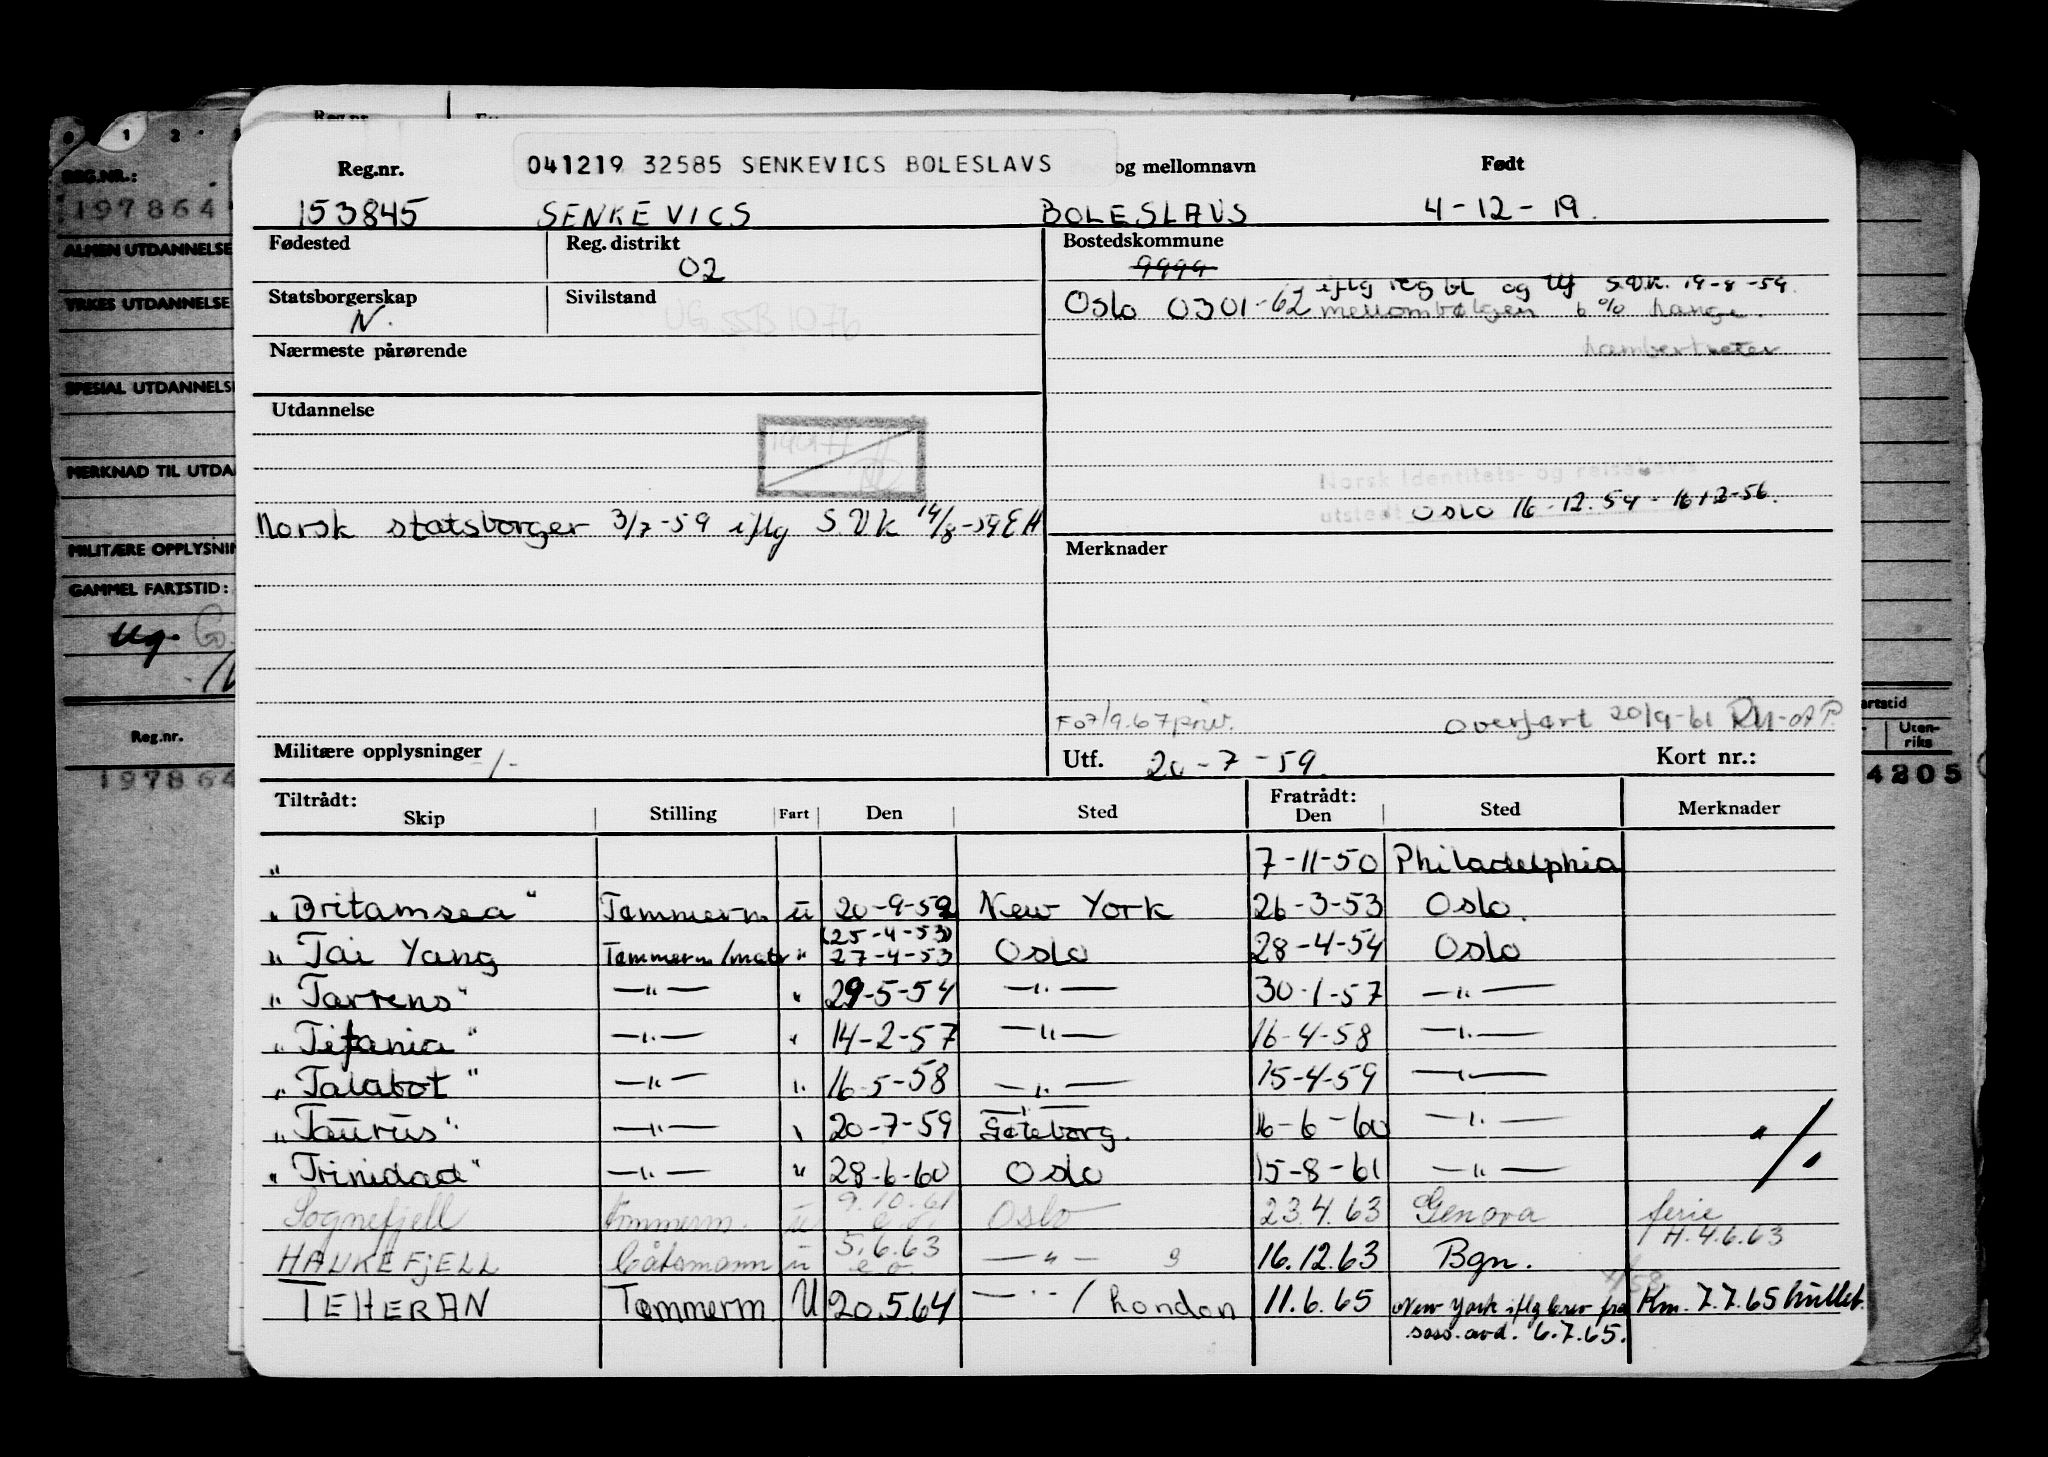 Reg.nr. 041219 32585 SENKEVICS BOLESLAVS og mellomnavn Født
153845 SENKEVICS BOLESLAVS 4-12-19.
Fødested Reg. distrikt Bostedskommune
02 9999
Statsborgerskap Sivilstand Oslo 0301-62 iflg reg bl og S.V.K. 19-8-59.
N. UG SSB 1076 mellombølgen 6 % Lange.
Nærmeste pårørende Lambertseter
Utdannelse
Norsk Identitets- og reisebevis
utstedt Oslo 16-12.54 - 16-12-56.
Norsk statsborger 3/7-59 iflg S.V.K 14/8-59 EH
Merknader
Fo 7/9.67 priv. Overført 20/9-61
Militære opplysninger -/- Utf. 20-7-59. Kort nr.:
Tiltrådt: Fratrådt:
Skip Stilling Fart Den Sted Den Sted Merknader
" 7-11-50 Philadelphia
"Britamsea" Tømmerm u 20-9-52 New York 26-3-53 Oslo.
(25-4-53)
"Tai Yang Tømmerm/matr " 27-4-53 Oslo 28-4-54 Oslo
"Tarrens" —"— " 29-5-54 —"— 30-1-57 —"—
"Titania" —"— " 14-2-57 —"— 16-4-58 —"—
"Talabot" —"— " 16-5-58 —"— 15-4-59 —"—
"Taurus" —"— " 20-7-59 —"— Gøteborg. 16-6-60 —"—
"Trinidad" —"— " 28-6-60 Oslo 15-8-61 —"—
Sognefjell Tømmerm. u 9.10.61 Oslo 23.4.63 Genova ferie
H.4.6.63
HAUKEFJELL Båtsmann u 5.6.63 —"— 16.12.63 Bgn.
TEHERAN Tømmerm U 20.5.64 —"— / London 11.6.65 New York iflg brev fra Km. 7.7.65 hullet.
sass. avd. 6.7.65.
REG.NR.:
197864
ALMEN UTDANNELSE
YRKES UTDANNELSE
SPESIAL UTDANNELSE
MERKNAD TIL UTDA
MILITÆRE OPPLYSNIN
GAMMEL FARTSTID:
Ug.
Reg.nr.
197864
artstid
Uten-
riks
4205